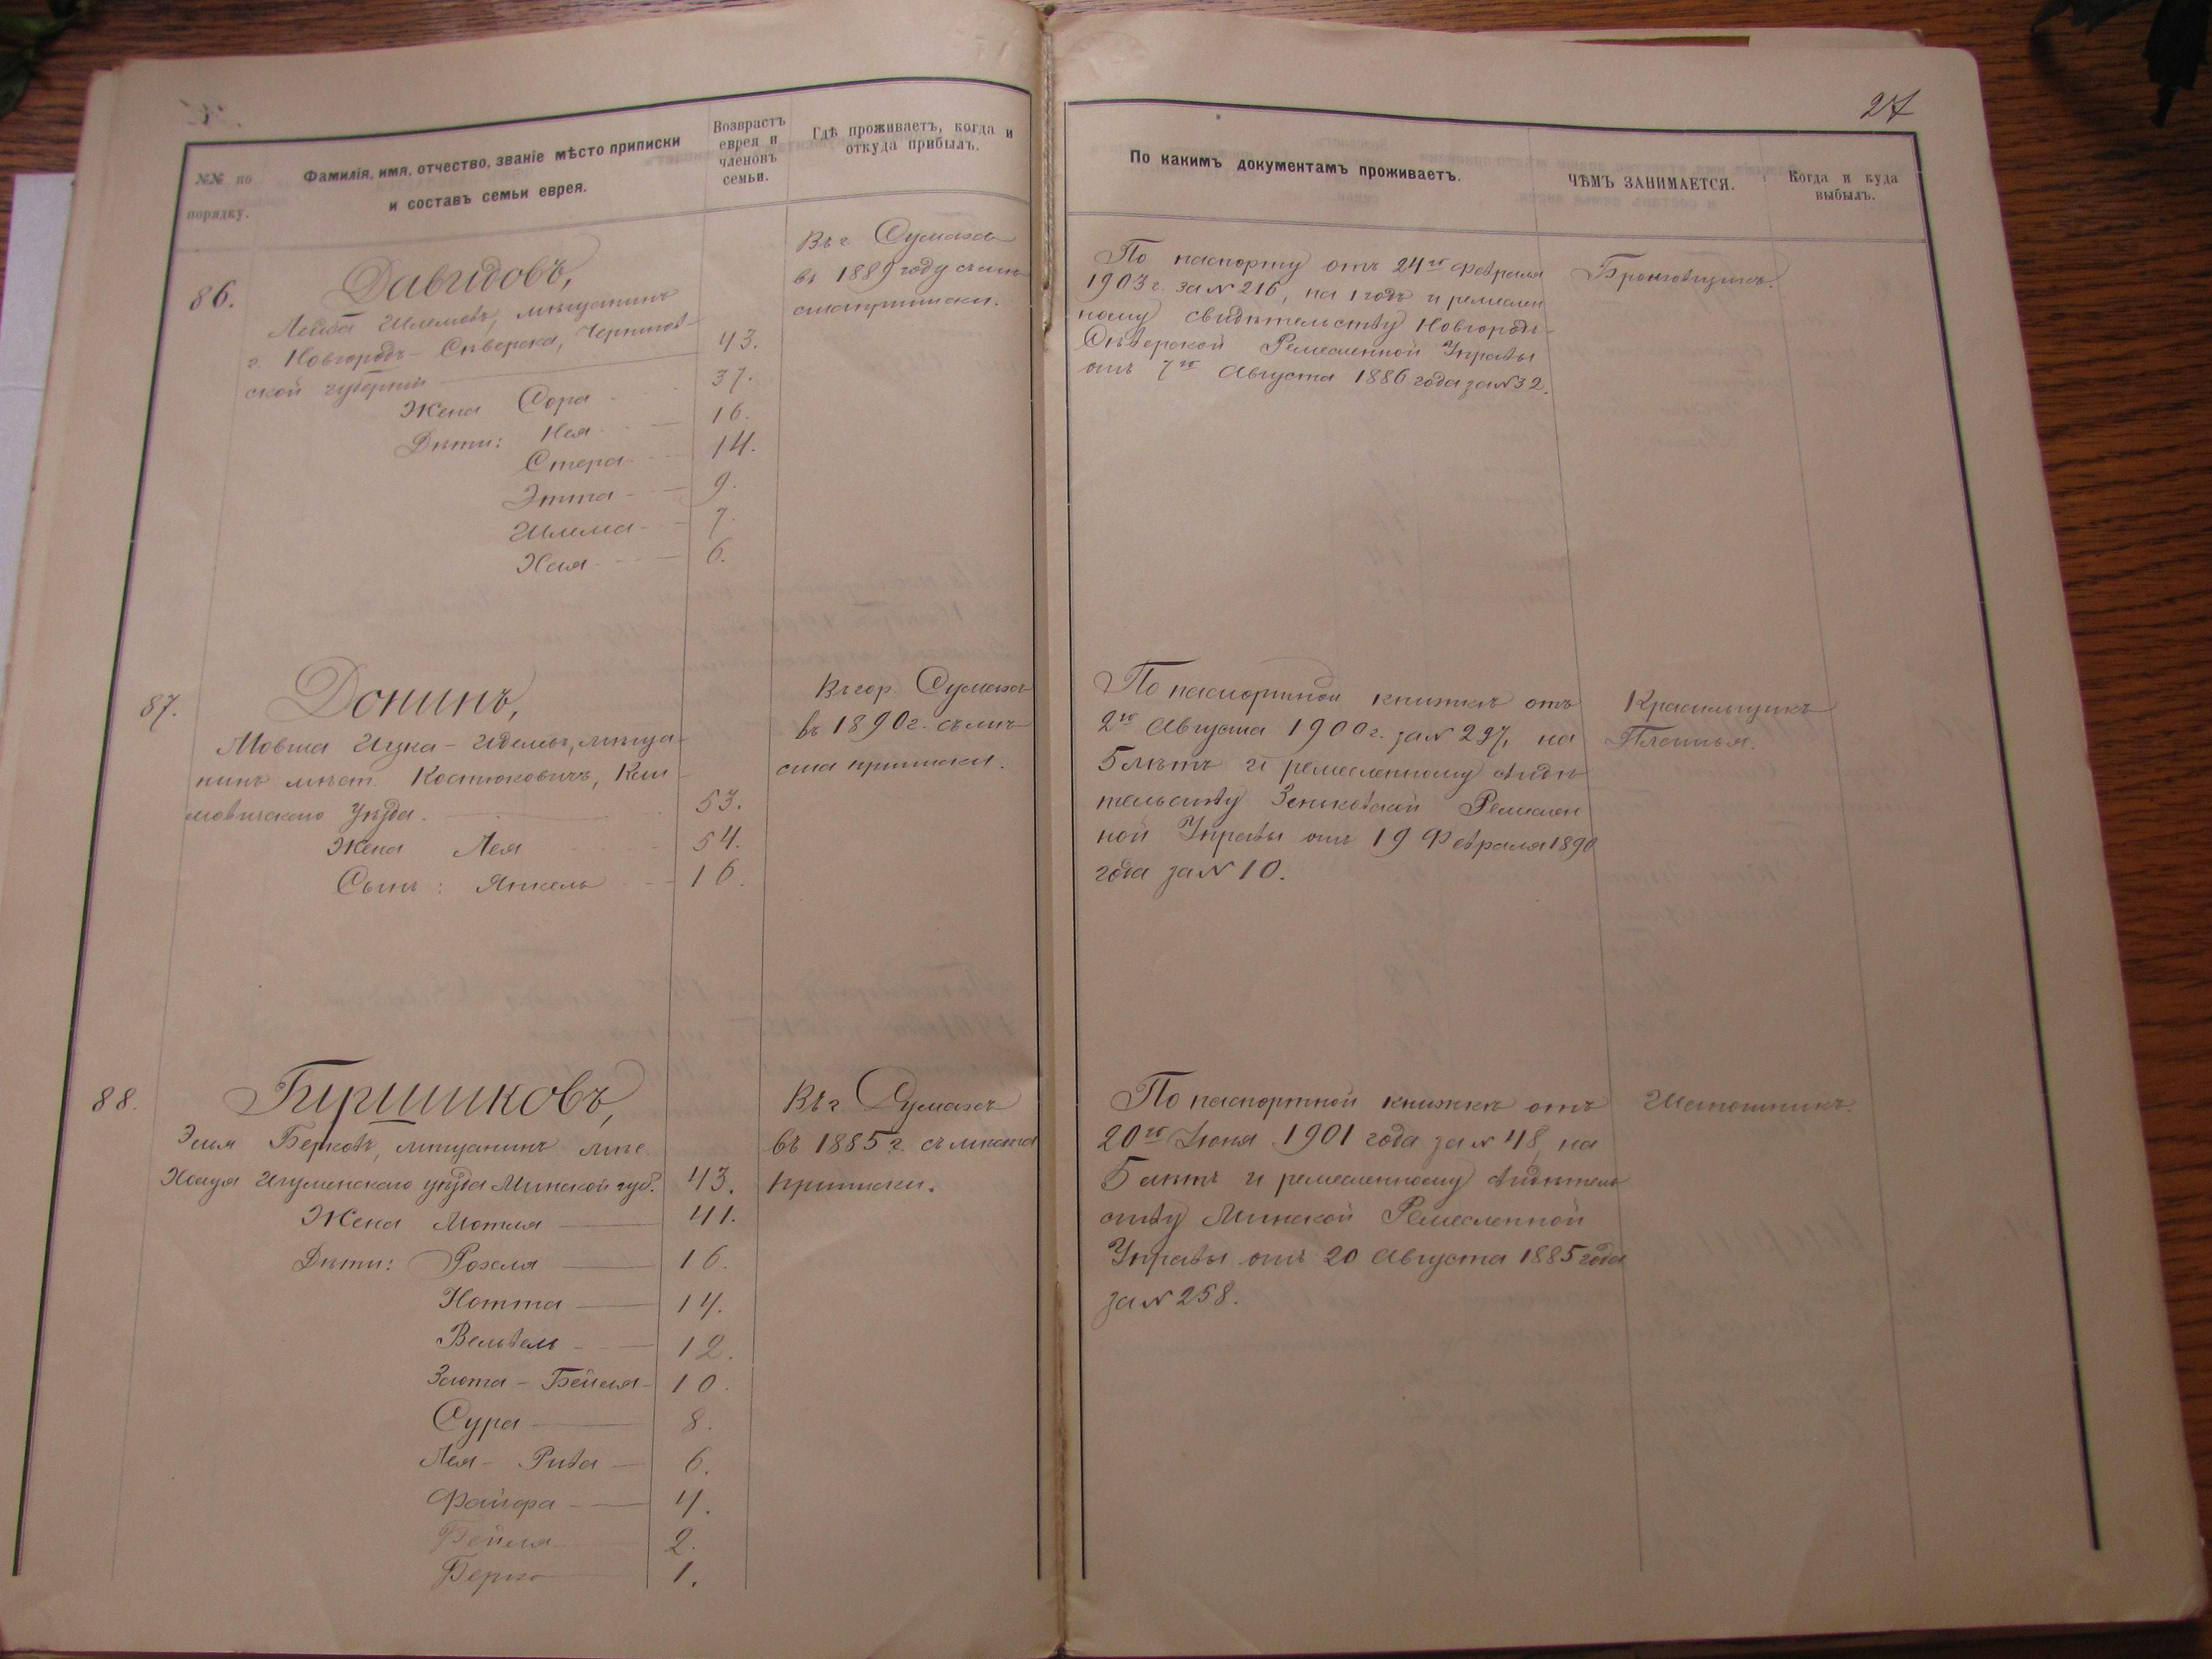 27
№№ по порядку.
Фамилія, имя, отчество, званіе мѣсто приписки
и составъ семьи еврея.
Возврастъ
еврея и
членовъ
семьи.
Гдѣ проживаетъ, когда и
откуда прибылъ.
По какимъ документамъ проживаетъ.
ЧѢМЪ ЗАНИМАЕТСЯ.
Когда и куда
выбылъ.
86.
Давидовъ,
Лейба Шлемовъ, мѣщанинъ
г. Новгородъ-Сѣверска, Чернигов-
ской губерніи 43.
Жена Сора 37.
Дѣти: Нея 16.
Стера 14.
Этта 9.
Шлема 7.
Хая 6.
Въ г. Сумахъ
въ 1889 году съ мѣ-
ста приписки.
По паспорту отъ 24го Февраля
1903 г. за № 216, на 1 годъ и ремеслен
ному свидѣтельству Новгородъ-
Сѣверской Ремесленной Управы
отъ 7го Августа 1886 года за № 32.
Бронзовщикъ.
87.
Донинъ,
Мовша Ицка-Иделевъ, мѣща-
нинъ мѣст. Костюковичъ, Кли-
мовичскаго уѣзда. 53.
Жена Лея 54.
Сынъ: Янкель 16.
Въ гор. Сумахъ
въ 1890 г. съ мѣ-
ста приписки.
По паспортной книжкѣ отъ
2го Августа 1900 г. за № 297, на
5 лѣтъ и ремесленному свидѣ
тельству Зеньковской Ремеслен
ной Управы отъ 19 Февраля 1890
года за № 10.
Красильщикъ
Платья.
88.
Гиршиковъ,
Эля Берковъ, мѣщанинъ мѣс.
Холуя Игуменскаго уѣзда Минской губ. 43.
Жена Мотля 41.
Дѣти: Рохля 16.
Нотта 14.
Вельвель 12.
Злота-Бейля 10.
Сура 8.
Лея-Рива 6.
Файфа 4.
Бейля 2.
Берко 1.
Въ г. Сумахъ
въ 1885 г. съ мѣста
приписки.
По паспортной книжкѣ отъ
20го Іюня 1901 года за № 48, на
5 лѣтъ и ремесленному свидѣтель
ству Минской Ремесленной
Управы отъ 20 Августа 1885 года
за № 258.
Шапошникъ.